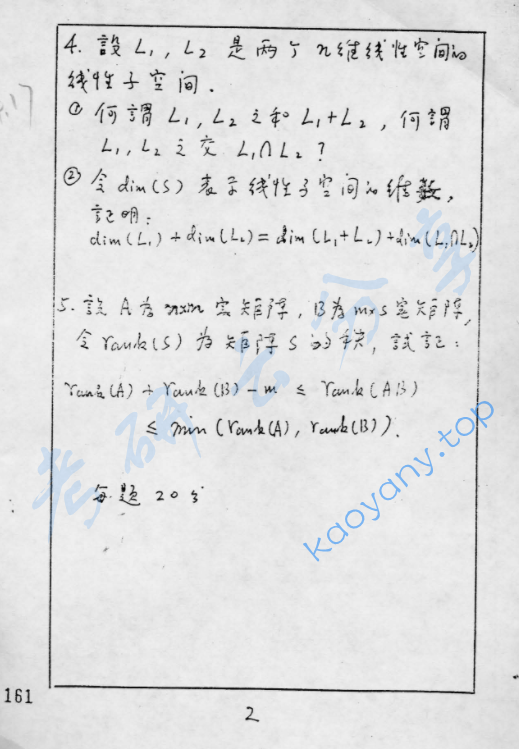 4. 設 L₁, L₂ 是两个 n维线性空间的
线性子空间.
① 何謂 L₁, L₂ 之和 L₁+L₂, 何謂
L₁, L₂ 之交 L₁∩L₂?
② 令 dim(S) 表示线性子空间的维数,
証明:
dim(L₁) + dim(L₂) = dim(L₁+L₂) + dim(L₁∩L₂)
5. 設 A 為 n×m 实矩阵, B 為 m×s 实矩阵,
令 rank(S) 為矩阵 S 的秩, 試証:
rank(A) + rank(B) - m ≤ rank(AB)
≤ min (rank(A), rank(B)).
每题 20 分
161
2
考研云分享
kaoyany.top